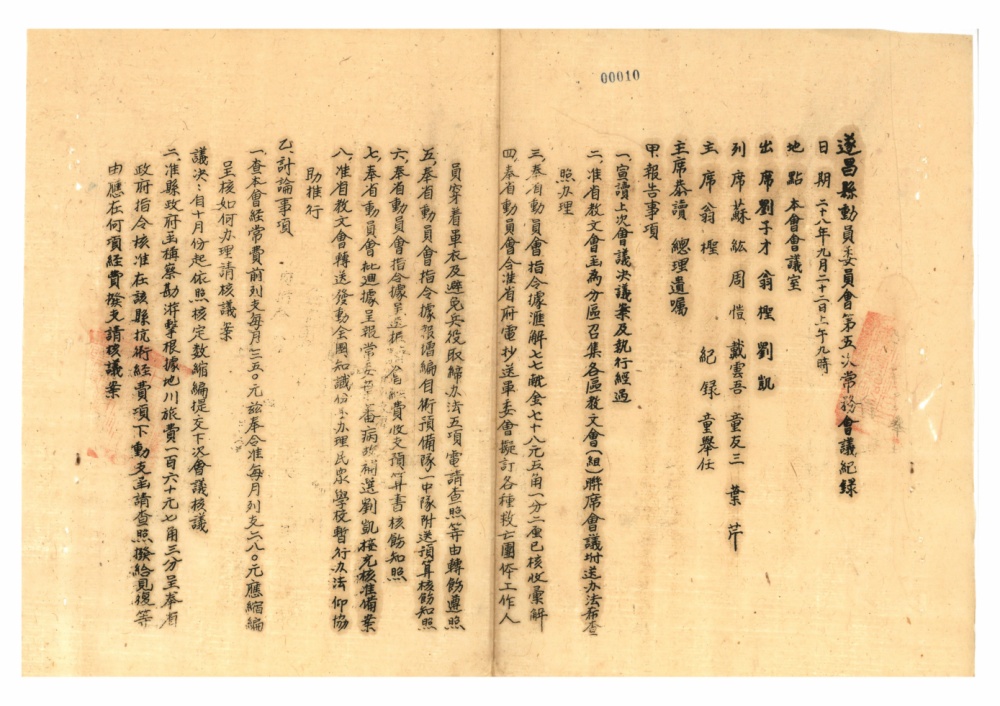 00010
遂昌縣動員委員會第五次常務會議紀錄
日期 二十八年九月二十二日上午九時
地點 本會會議室
出席 劉子才 翁樫 劉凱
列席 蘇紘 周愷 戴雲吾 童友三 葉芹
主席 翁樫 紀錄 童舉任
主席恭讀 總理遺囑
甲、報告事項
一、宣讀上次會議決議案及執行經過
二、准省教文會函為分區召集各區教文會(組)聯席會議坿送办法希查
照办理
三、奉省動員會指令據滙解七七献金七十八元五角一分二厘已核收彙解
四、奉省動員會令准省府電抄送軍委會擬訂各種救亡團体工作人
員穿着單衣及避免兵役取締办法五項電請查照等由轉飭遵照
五、奉省動員會指令據報擴編自衛預備隊一中隊附送預算核飭知照
六、奉省動員會指令據呈送振 費收支預算書核飭知照
七、奉省動員會批迴據呈報常委 番病故補選劉凱 充核准備案
八、准省教文會轉送發動全國知識份子办理民眾學校暫行办法仰協
助推行
乙、討論事項
一、查本會經常費前列支每月三五〇元兹奉令准每月列支二八〇元應縮編
呈核如何办理請核議案
議决:自十月份起依照核定数縮編提交下次會議核議
二、准縣政府函稱察勘游擊根據地川旅費一百六十元七角三分呈奉省
政府指令核准在該縣抗衛經費項下動支函請查照撥給見復等
由應在何項經費撥支請核議案